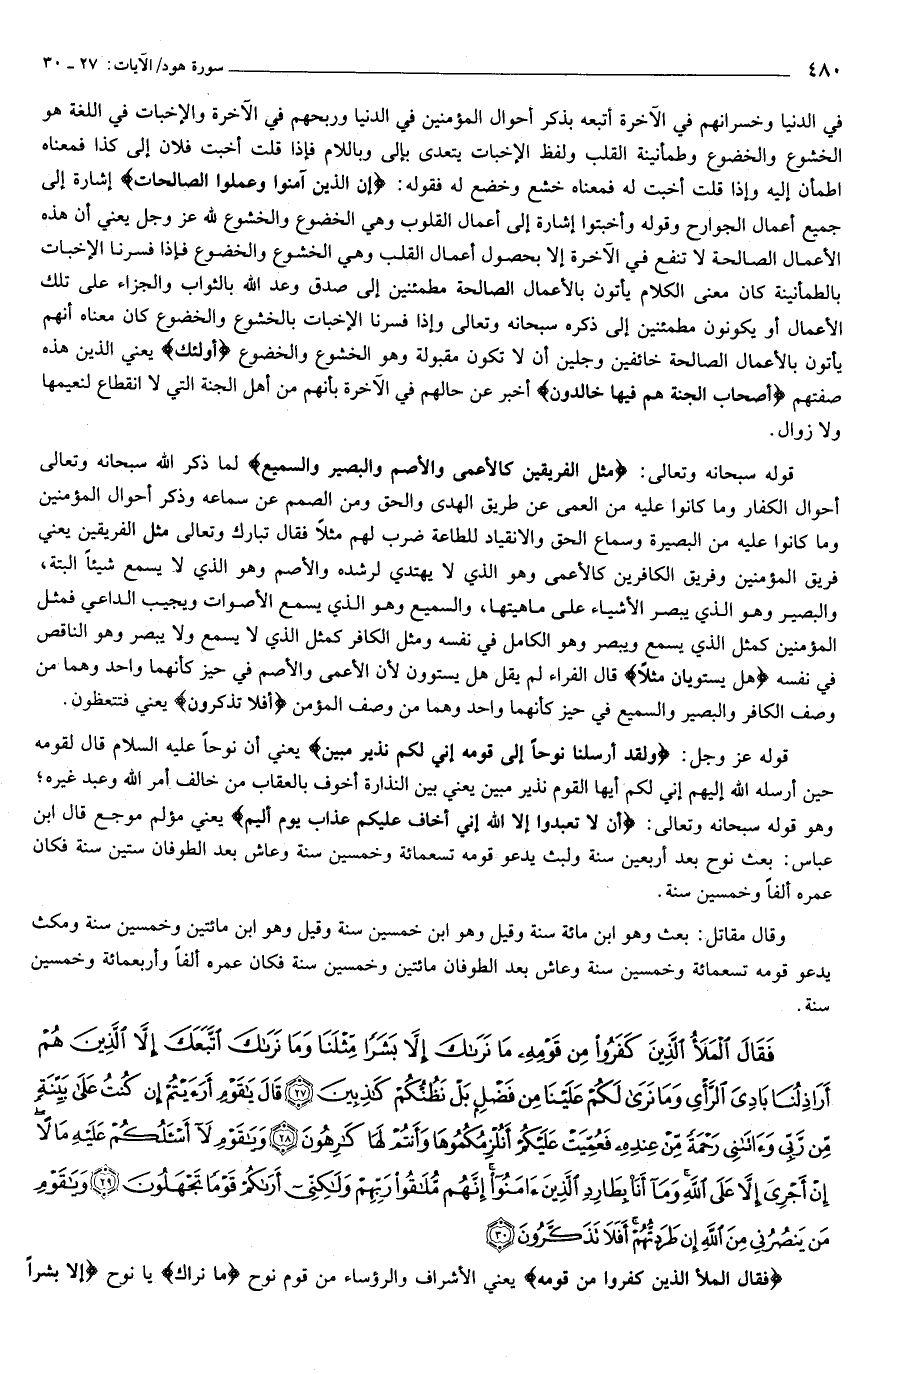 ٤٨٠ سورة هود/ الآيات: ٢٧ - ٣٠
في الدنيا وخسرانهم في الآخرة أتبعه بذكر أحوال المؤمنين في الدنيا وربحهم في الآخرة والإخبات في اللغة هو
الخشوع والخضوع وطمأنينة القلب ولفظ الإخبات يتعدى بإلى وباللام فإذا قلت أخبت فلان إلى كذا فمعناه
اطمأن إليه وإذا قلت أخبت له فمعناه خشع وخضع له فقوله: ﴿إن الذين آمنوا وعملوا الصالحات﴾ إشارة إلى
جميع أعمال الجوارح وقوله وأخبتوا إشارة إلى أعمال القلوب وهي الخضوع والخشوع لله عز وجل يعني أن هذه
الأعمال الصالحة لا تنفع في الآخرة إلا بحصول أعمال القلب وهي الخشوع والخضوع فإذا فسرنا الإخبات
بالطمأنينة كان معنى الكلام يأتون بالأعمال الصالحة مطمئنين إلى صدق وعد الله بالثواب والجزاء على تلك
الأعمال أو يكونون مطمئنين إلى ذكره سبحانه وتعالى وإذا فسرنا الإخبات بالخشوع والخضوع كان معناه أنهم
يأتون بالأعمال الصالحة خائفين وجلين أن لا تكون مقبولة وهو الخشوع والخضوع ﴿أولئك﴾ يعني الذين هذه
صفتهم ﴿أصحاب الجنة هم فيها خالدون﴾ أخبر عن حالهم في الآخرة بأنهم من أهل الجنة التي لا انقطاع لنعيمها
ولا زوال.
قوله سبحانه وتعالى: ﴿مثل الفريقين كالأعمى والأصم والبصير والسميع﴾ لما ذكر الله سبحانه وتعالى
أحوال الكفار وما كانوا عليه من العمى عن طريق الهدى والحق ومن الصمم عن سماعه وذكر أحوال المؤمنين
وما كانوا عليه من البصيرة وسماع الحق والانقياد للطاعة ضرب لهم مثلاً فقال تبارك وتعالى مثل الفريقين يعني
فريق المؤمنين وفريق الكافرين كالأعمى وهو الذي لا يهتدي لرشده والأصم وهو الذي لا يسمع شيئاً البتة،
والبصير وهو الذي يبصر الأشياء على ماهيتها، والسميع وهو الذي يسمع الأصوات ويجيب الداعي فمثل
المؤمنين كمثل الذي يسمع ويبصر وهو الكامل في نفسه ومثل الكافر كمثل الذي لا يسمع ولا يبصر وهو الناقص
في نفسه ﴿هل يستويان مثلاً﴾ قال الفراء لم يقل هل يستوون لأن الأعمى والأصم في حيز كأنهما واحد وهما من
وصف الكافر والبصير والسميع في حيز كأنهما واحد وهما من وصف المؤمن ﴿أفلا تذكرون﴾ يعني فتتعظون.
قوله عز وجل: ﴿ولقد أرسلنا نوحاً إلى قومه إني لكم نذير مبين﴾ يعني أن نوحاً عليه السلام قال لقومه
حين أرسله الله إليهم إني لكم أيها القوم نذير مبين يعني بين النذارة أخوف بالعقاب من خالف أمر الله وعبد غيره؛
وهو قوله سبحانه وتعالى: ﴿أن لا تعبدوا إلا الله إني أخاف عليكم عذاب يوم أليم﴾ يعني مؤلم موجع قال ابن
عباس: بعث نوح بعد أربعين سنة ولبث يدعو قومه تسعمائة وخمسين سنة وعاش بعد الطوفان ستين سنة فكان
عمره ألفاً وخمسين سنة.
وقال مقاتل: بعث وهو ابن مائة سنة وقيل وهو ابن خمسين سنة وقيل وهو ابن مائتين وخمسين سنة ومكث
يدعو قومه تسعمائة وخمسين سنة وعاش بعد الطوفان مائتين وخمسين سنة فكان عمره ألفاً وأربعمائة وخمسين
سنة.
فَقَالَ ٱلْمَلَأُ ٱلَّذِينَ كَفَرُوا۟ مِن قَوْمِهِۦ مَا نَرَىٰكَ إِلَّا بَشَرًا مِّثْلَنَا وَمَا نَرَىٰكَ ٱتَّبَعَكَ إِلَّا ٱلَّذِينَ هُمْ
أَرَاذِلُنَا بَادِىَ ٱلرَّأْىِ وَمَا نَرَىٰ لَكُمْ عَلَيْنَا مِن فَضْلٍۭ بَلْ نَظُنُّكُمْ كَٰذِبِينَ ﴿٢٧﴾ قَالَ يَٰقَوْمِ أَرَءَيْتُمْ إِن كُنتُ عَلَىٰ بَيِّنَةٍ
مِّن رَّبِّى وَءَاتَىٰنِى رَحْمَةً مِّنْ عِندِهِۦ فَعُمِّيَتْ عَلَيْكُمْ أَنُلْزِمُكُمُوهَا وَأَنتُمْ لَهَا كَٰرِهُونَ ﴿٢٨﴾ وَيَٰقَوْمِ لَآ أَسْـَٔلُكُمْ عَلَيْهِ مَالًا
إِنْ أَجْرِىَ إِلَّا عَلَى ٱللَّهِ وَمَآ أَنَا۠ بِطَارِدِ ٱلَّذِينَ ءَامَنُوٓا۟ إِنَّهُم مُّلَٰقُوا۟ رَبِّهِمْ وَلَٰكِنِّىٓ أَرَىٰكُمْ قَوْمًا تَجْهَلُونَ ﴿٢٩﴾ وَيَٰقَوْمِ
مَن يَنصُرُنِى مِنَ ٱللَّهِ إِن طَرَدتُّهُمْ أَفَلَا تَذَكَّرُونَ ﴿٣٠﴾
﴿فقال الملأ الذين كفروا من قومه﴾ يعني الأشراف والرؤساء من قوم نوح ﴿ما نراك﴾ يا نوح ﴿إلا بشراً